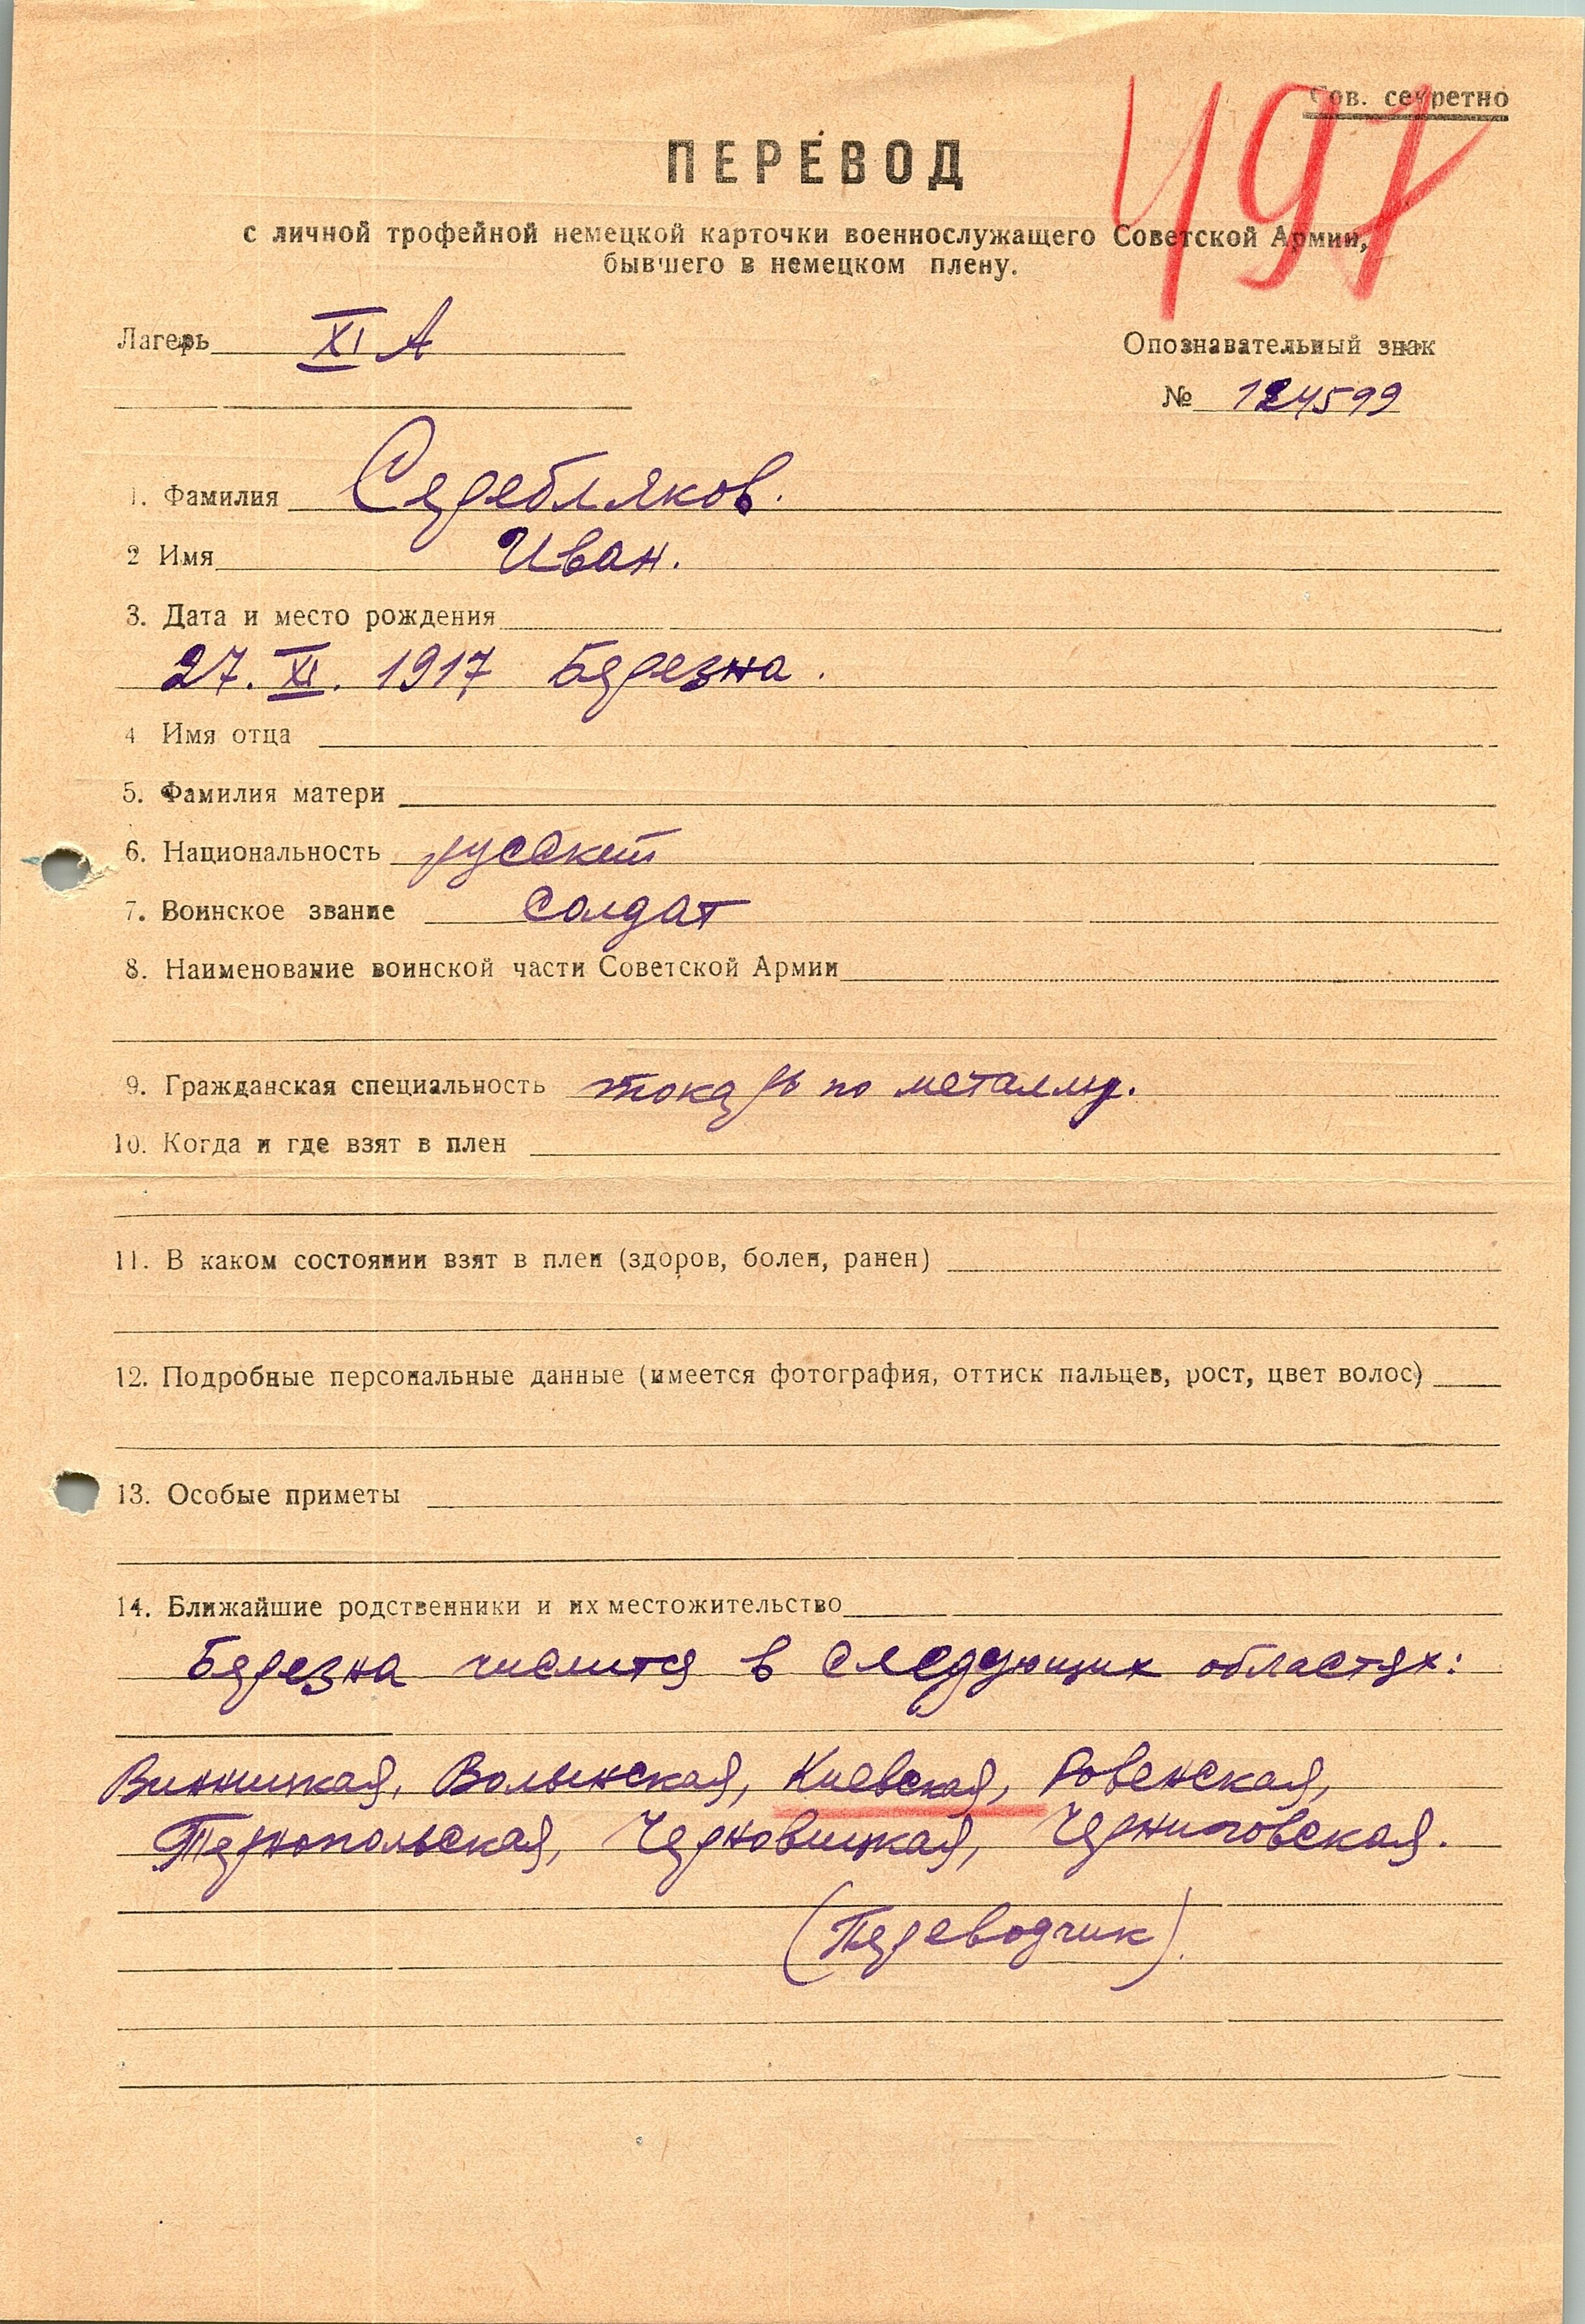 Сов. секретно
497
ПЕРЕВОД
с личной трофейной немецкой карточки военнослужащего Советской Армии,
бывшего в немецком плену.
Лагерь XI А
Опознавательный знак
№ 124599
1. Фамилия Серебляков.
2 Имя Иван.
3. Дата и место рождения
27. XI. 1917 Березна.
4 Имя отца
5. Фамилия матери
6. Национальность русский
7. Воинское звание солдат
8. Наименование воинской части Советской Армии
9. Гражданская специальность токарь по металлу.
10. Когда и где взят в плен
11. В каком состоянии взят в плен (здоров, болен, ранен)
12. Подробные персональные данные (имеется фотография, оттиск пальцев, рост, цвет волос)
13. Особые приметы
14. Ближайшие родственники и их местожительство
Березна числится в следующих областях:
Винницкая, Волынская, Киевская, Ровенская,
Тернопольская, Черновицкая, Черниговская.
(Переводчик).